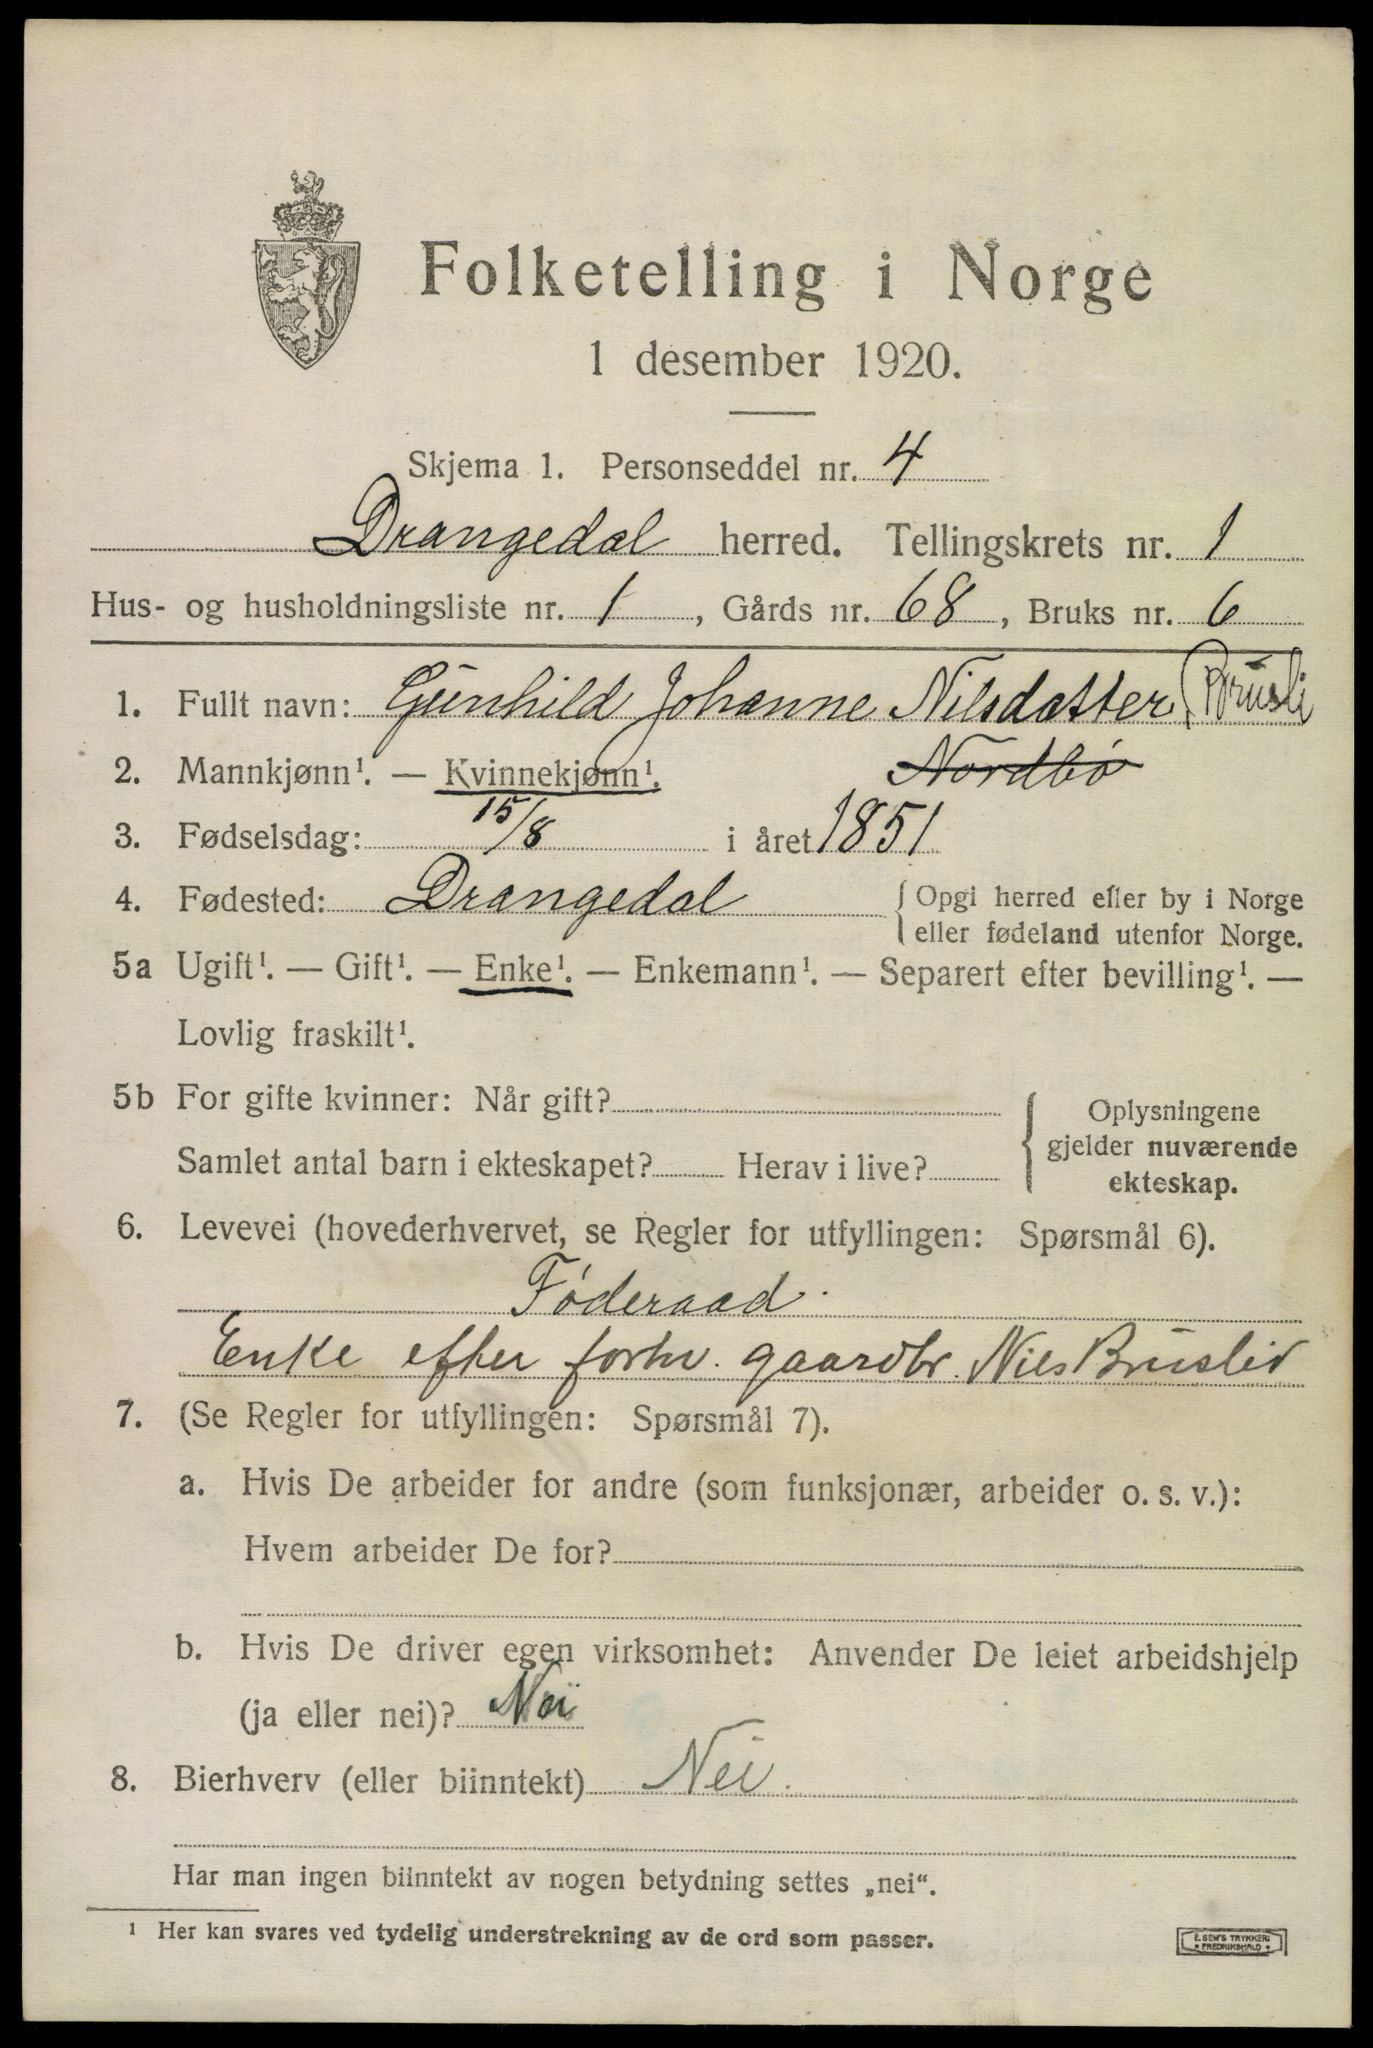 Folketelling i Norge
1 desember 1920.
Skjema 1. Personseddel nr. 4
Drangedal herred. Tellingskrets nr. 1
Hus- og husholdningsliste nr. 1, Gårds nr. 68, Bruks nr. 6
1. Fullt navn: Gunhild Johanne Nilsdatter (Brusli
2. Mannkjønn¹. — Kvinnekjønn¹. Nordbø
3. Fødselsdag: 15/8 i året 1851
4. Fødested: Drangedal { Opgi herred eller by i Norge
eller fødeland utenfor Norge.
5a Ugift¹. — Gift¹. — Enke¹. — Enkemann¹. — Separert efter bevilling¹. —
Lovlig fraskilt¹.
5b For gifte kvinner: Når gift?
Samlet antal barn i ekteskapet? Herav i live?
{ Oplysningene
gjelder nuværende
ekteskap.
6. Levevei (hovederhvervet, se Regler for utfyllingen: Spørsmål 6).
Føderaad.
Enke efter forhv. gaardbr. Nils Bruslid
7. (Se Regler for utfyllingen: Spørsmål 7).
a. Hvis De arbeider for andre (som funksjonær, arbeider o. s. v.):
Hvem arbeider De for?
b. Hvis De driver egen virksomhet: Anvender De leiet arbeidshjelp
(ja eller nei)? Nei
8. Bierhverv (eller biinntekt) Nei.
Har man ingen biinntekt av nogen betydning settes „nei“.
¹ Her kan svares ved tydelig understrekning av de ord som passer.
E. SEM'S TRYKKERI
• FREDRIKSHALD •